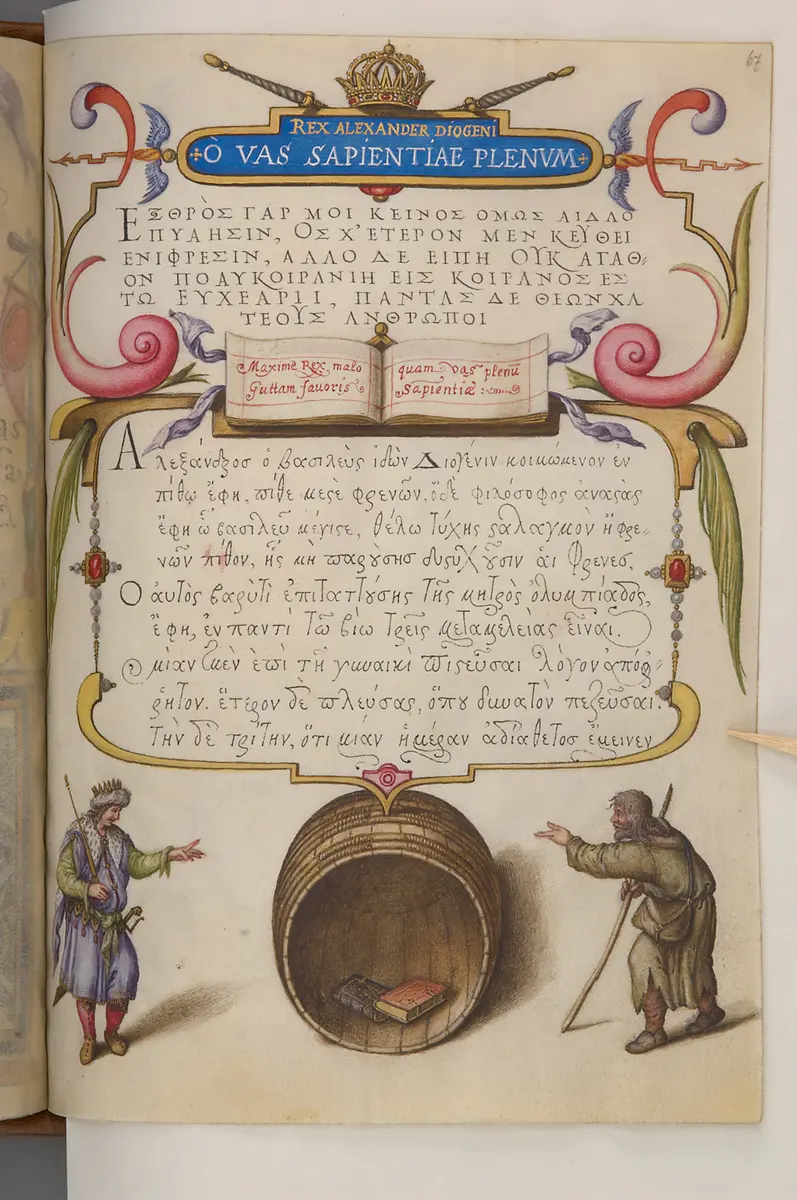 67
REX ALEXANDER DIOGENI
Ò VAS SAPIENTIAE PLENVM
ΕΞΘΡῸΣ ΓΑΡ ΜΟΙ ΚΕΙΝΟΣ ΟΜΩΣ ΑΙΔΛΟ
ΠΥΛΗΣΙΝ, ΟΣ Χ' ΕΤΕΡΟΝ ΜΕΝ ΚΕΥΘΕΙ
ΕΝΙΦΡΕΣΙΝ, ΑΛΛΟ ΔΕ ΕΙΠΗ ΟΥΚ ΑΓΑΘ
ΟΝ ΠΟΛΥΚΟΙΡΑΝΙΗ ΕΙΣ ΚΟΙΡΑΝΟΣ ΕΣ
ΤΩ ΕΥΧΕΑΡΙΙ, ΠΑΝΤΑΣ ΔΕ ΘΕΩΝ ΧΑ
ΤΕΟΥΣ ΑΝΘΡΩΠΟΙ
Maxime Rex, malo
Guttam favoris
quam vas plenū
Sapientiæ:
Αλεξάνδρος ὁ βασιλεὺς ἰδὼν Διογένιν κοιμώμενον ἐν
πίθῳ ἔφη, πίθε μεςὲ φρενῶν, ὁδὲ φιλόσοφος ἀναςὰς
ἔφη ὦ βασιλεῦ μέγιςε, θέλω τύχης ςαλαγμὸν ἢ φρε-
νῶν πίθον, ἧς μὴ παρούσης δυςυχοῦσιν αἱ φρενες.
Ὁ αὐτὸς βαρύτι ἐπιταττούσης τῆς μητρὸς ὀλυμπίαδος,
ἔφη, ἐν παντὶ τῷ βίῳ τρεῖς μεταμελείας εἶναι.
μίαν μὲν ἐπὶ τῇ γυναικὶ πιςεῦσαι λόγον ἀπόῤ-
ῥητον. ἕτερον δὲ πλεύσας, ὅπου δυνατὸν πεζεῦσαι.
Τὴν δὲ τρίτην, ὅτι μίαν ἡμέραν ἀδιάθετος ἔμεινεν